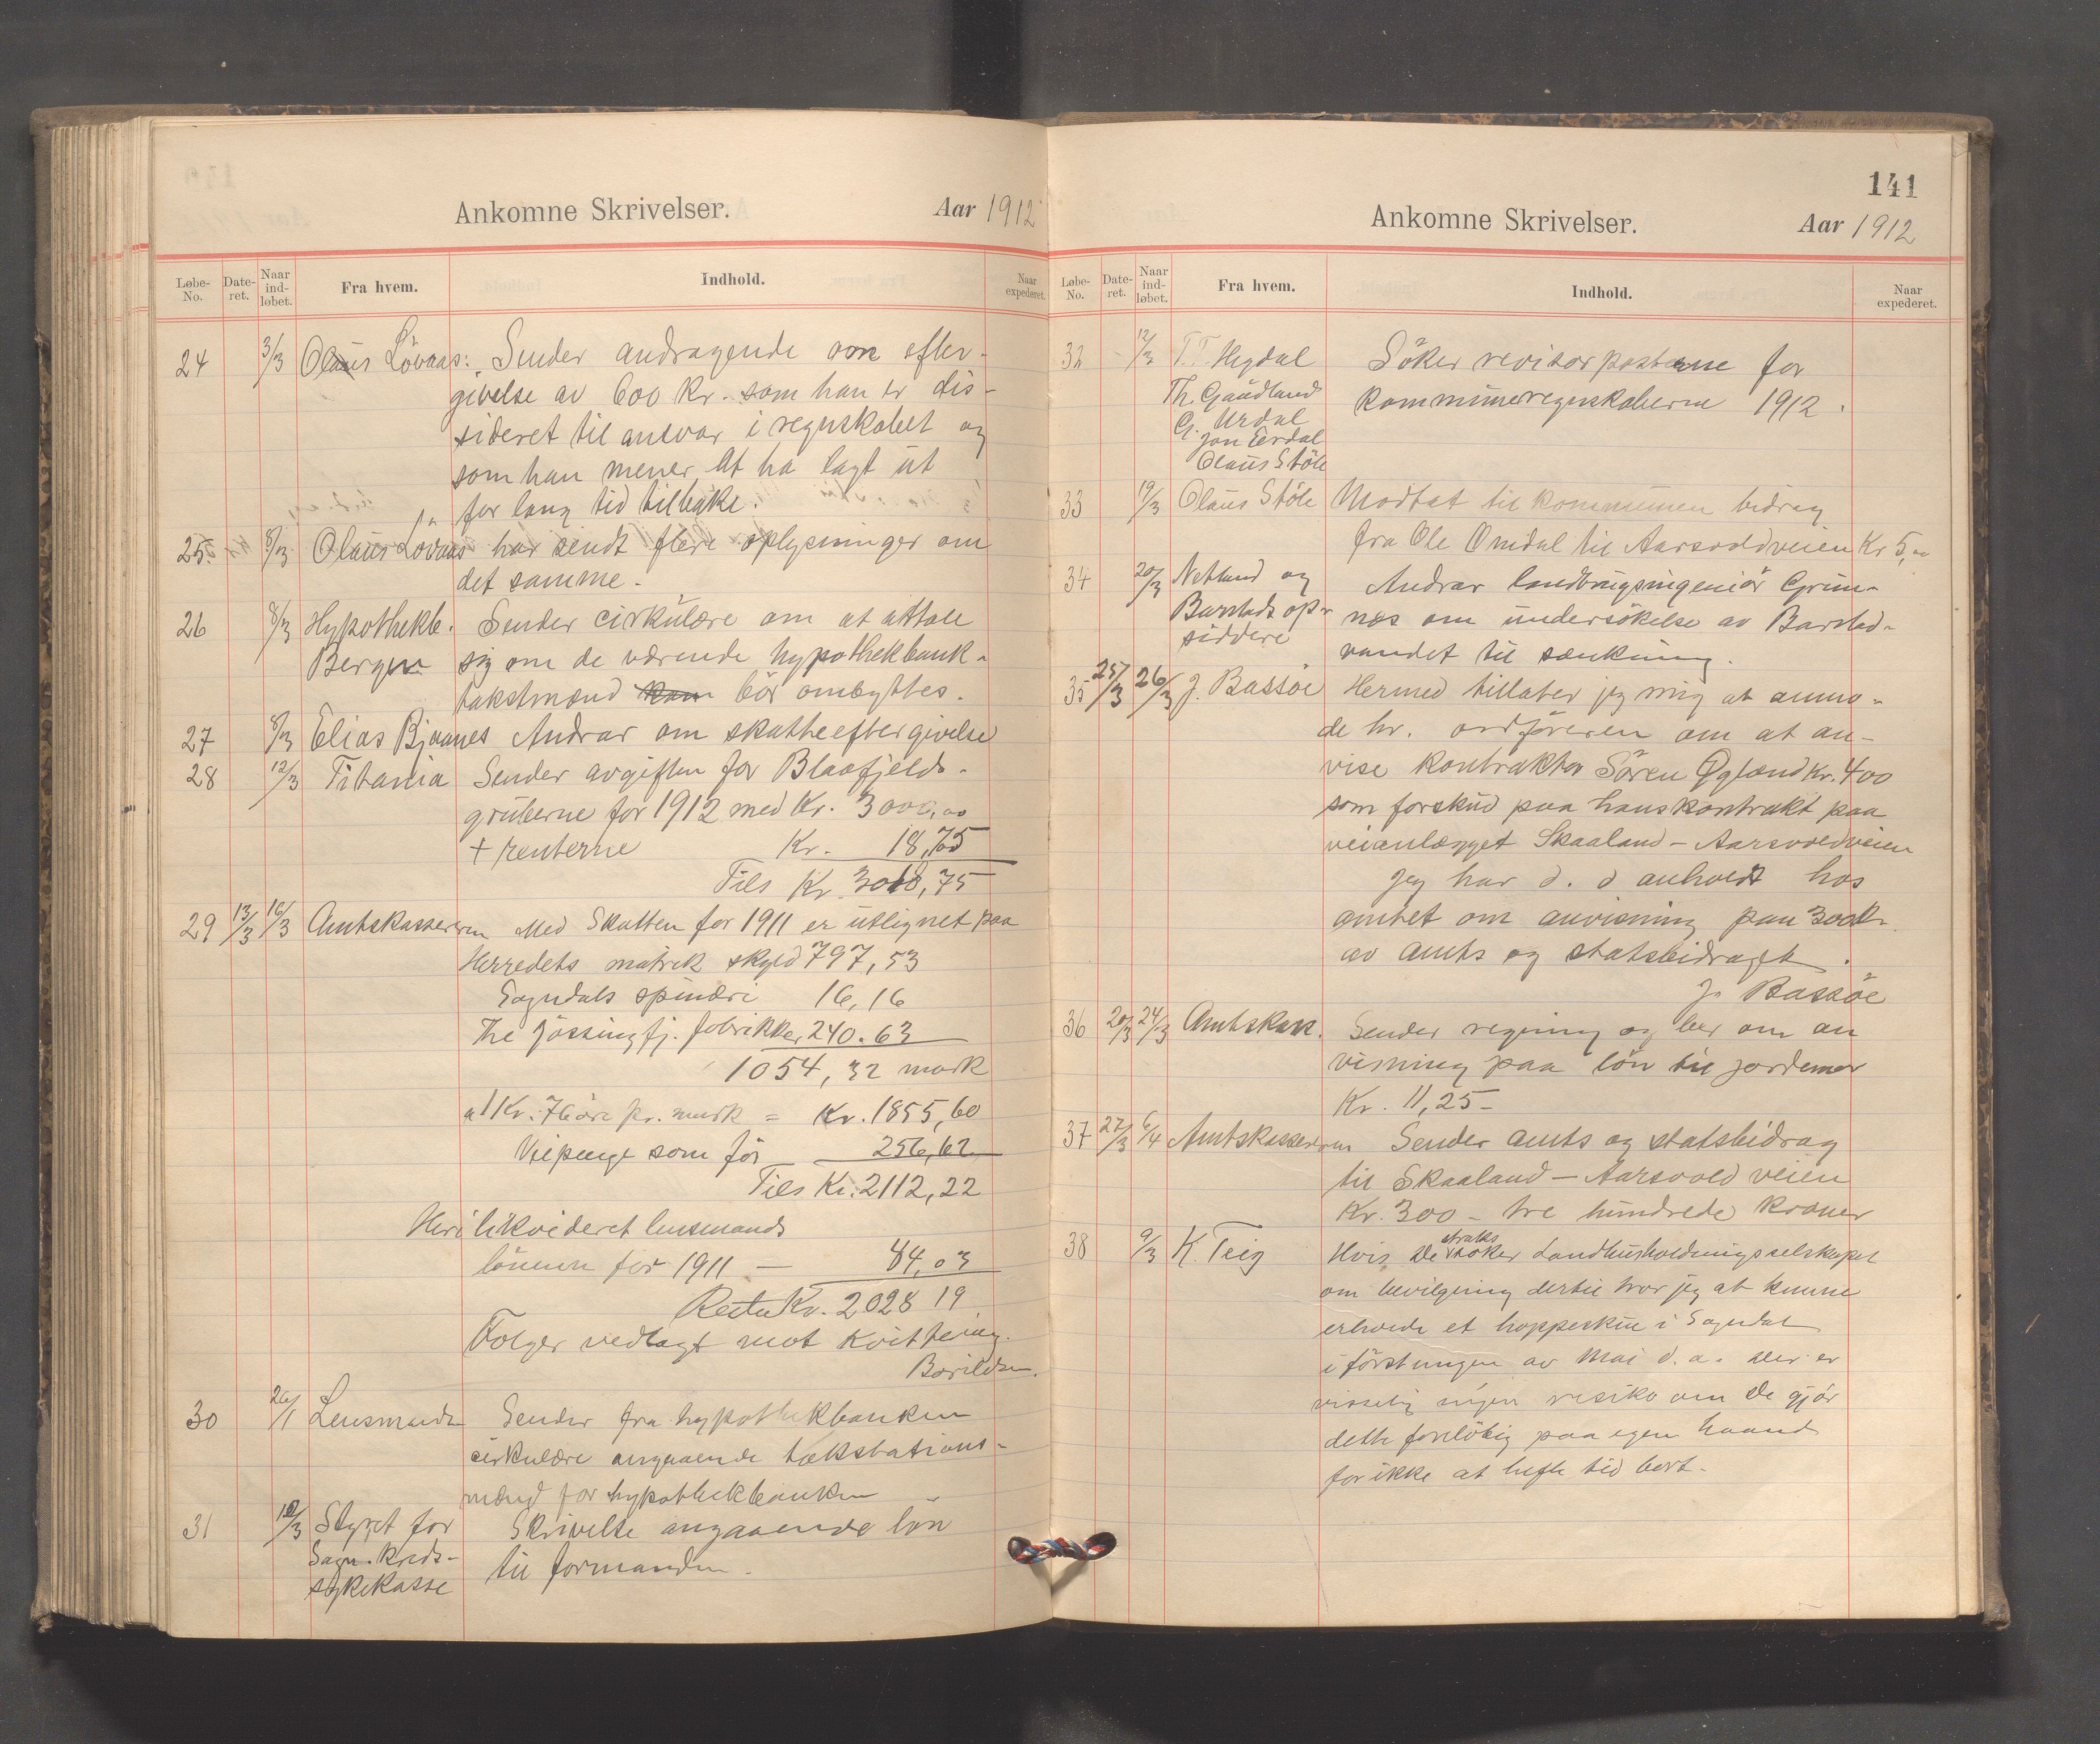 Ankomne Skrivelser. Aar 1912
Løbe-No. Date-ret. Naar ind-løbet. Fra hvem. Indhold. Naar expederet.
24 3/3 Olaus Lövaas: Sender andragende om efter-
givelse av 600 Kr. som han er dis-
sideret til ansvar i regnskabet og
som han mener at ha lagt ut
for lang tid tilbake.
25. 8/3 Olaus Lovaas har sendt flere oplysninger om
det samme.
26 8/3 Hypothekb. Sender cirkulære om at uttale
Bergen sig om de værende hypothekbank-
takstmænd kan bör ombyttes.
27 8/3 Elias Bjaanes Andrar om skatteeftergivelse
28 12/3 Titania Sender avgiften for Blaafjelds-
gruberne for 1912 med Kr. 3000,00
+ renterne Kr. 18,75
Tils Kr. 3018,75
29 13/3 16/3 Amtskassereren Med Skatten for 1911 er utlignet paa
Herredets matrik skyld 797,53
Sogndals spinderi 16,16
The Jössingfj. fabrikker 240.63
1054,32 mark
a 1 Kr. 76 öre pr. mark = Kr. 1855,60
Veipenge som för 256,62
Tils Kr. 2112,22
Heri likvideret lensmands
lönnen for 1911 — 84,03
Rester Kr. 2028 19
Folger vedlagt mot kvittering.
30 26/1 Lensmanden Sender fra hypothekbanken
cirkulære angaaende takstations-
mænd for hypothekbanken
31 18/3 Styret for Skrivelse angaaende lön
Sogn. Kreds- til formanden.
sykekasse
141
Ankomne Skrivelser. Aar 1912
Løbe-No. Date-ret. Naar ind-løbet. Fra hvem. Indhold. Naar expederet.
32 12/3 T. T. Hegdal Söker revisorposterne for
Th. Gaudland kommuneregnskaberne 1912.
G. Urdal
Jon Eerdal
Olaus Stöle
33 19/3 Olaus Stöle Modtat til kommunen bidrag
fra Ole Omdal til Aarsvoldveien Kr 5,00
34 20/3 Netland og Andrar landbrugsingeniör Grim-
Barstads op- nes om undersökelse av Barstad-
siddere vandet til sænkning.
35 25/3 26/3 J. Bassöe Hermed tillater jeg mig at anmo-
de hr. ordföreren om at an-
vise kontraktor Sören Øgland Kr. 400
som forskud paa hans kontrakt paa
veianlægget Skaaland - Aarsvoldveien
Jeg har d. d anholdt hos
amtet om anvisning paa 300 Kr.
av amts og statsbidraget.
J. Bassöe
36 20/3 24/3 Amtskass. Sender regning og ber om an
visning paa lön til jordemor
Kr. 11,25-
37 27/3 6/4 Amtskassereren Sender amts og statsbidrag
til Skaaland - Aarsvold veien
Kr. 300 - tre hundrede kroner
38 9/3 K. Teig Hvis De straks söker Landhusholdningsselskapet
om bevilgning dertil tror jeg at kunne
erholde et hoppeskue i Sogndal
i förstningen av Mai d. a. Der er
visselig ingen resiko om De gjör
dette foreløbig paa egen haand
for ikke at hefte tid bort.